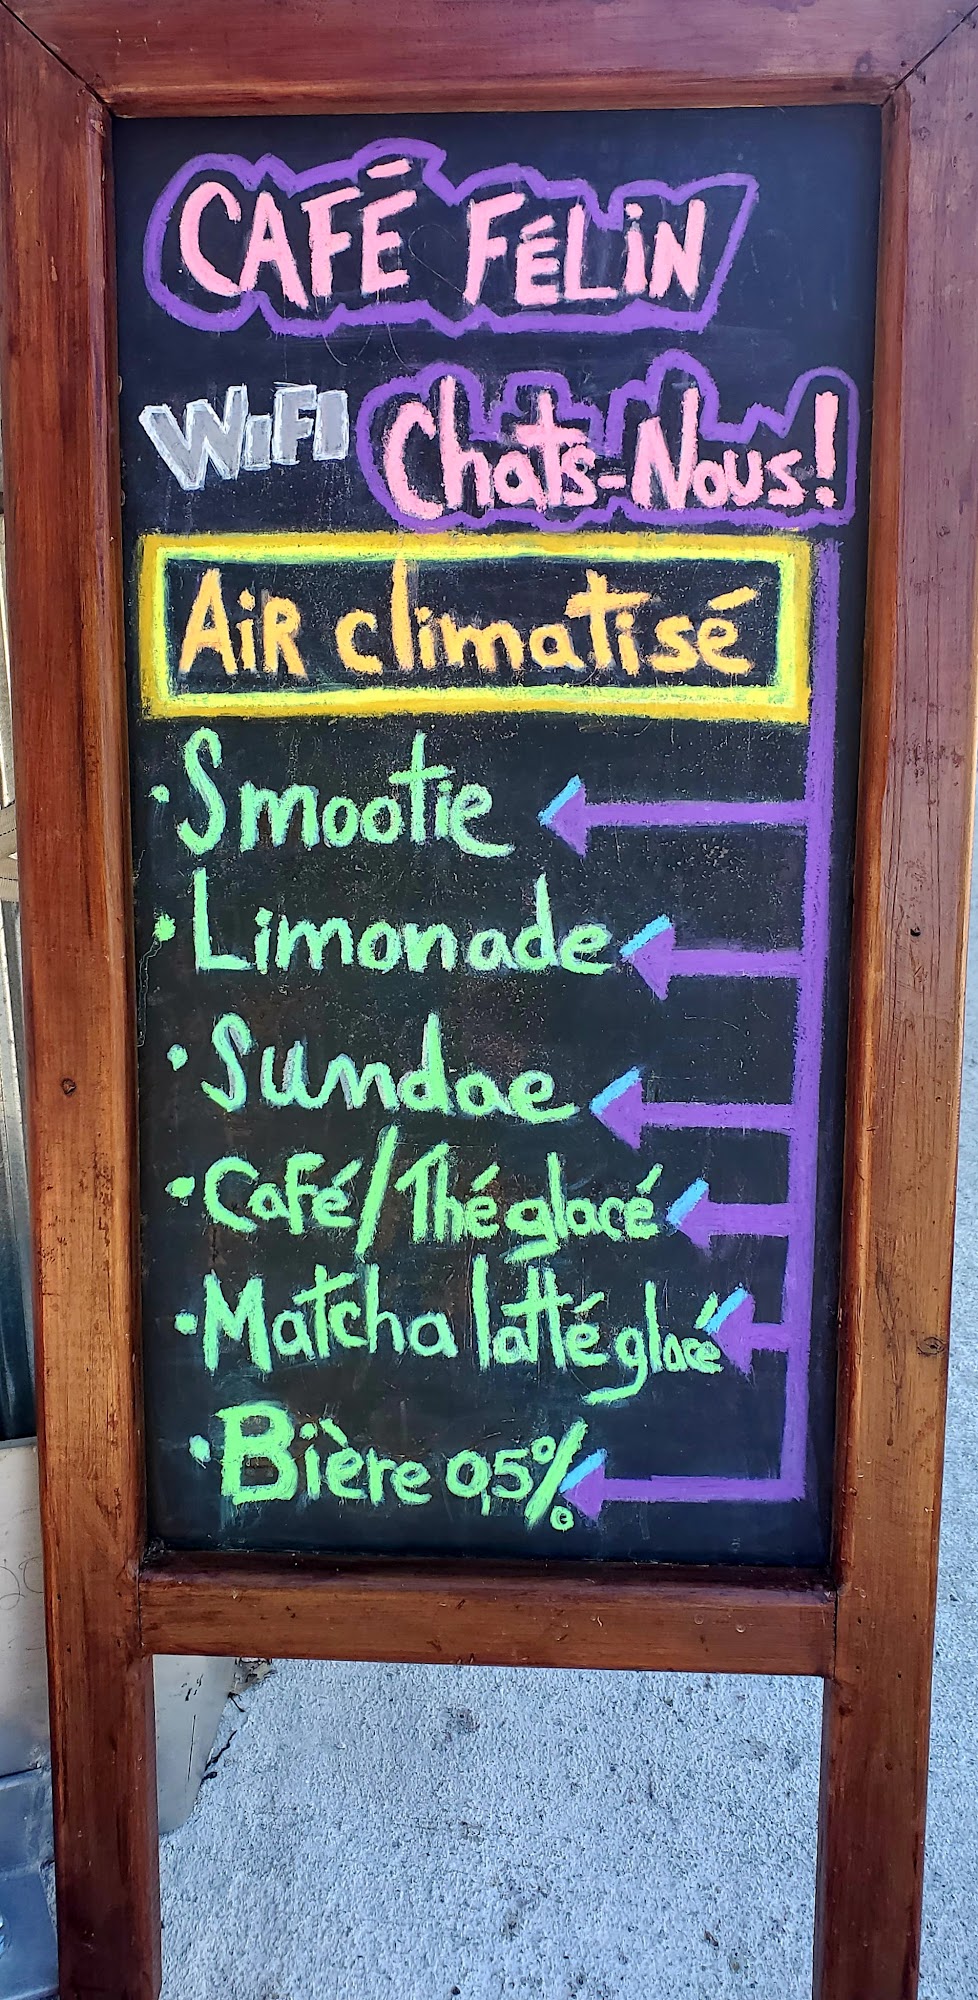 CAFÉ FÉLiN
WiFi Chats-Nous!
AiR climatisé
• Smootie
• Limonade
• Sundae
• Café/Thé glacé
• Matcha latté glacé
• Bière 0,5%